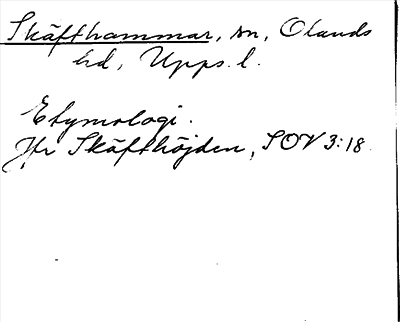 Skäfthammar, sn, Olands
hd, Upps. l.
Etymologi.
Jfr Skäfthöjden, SOV 3:18.